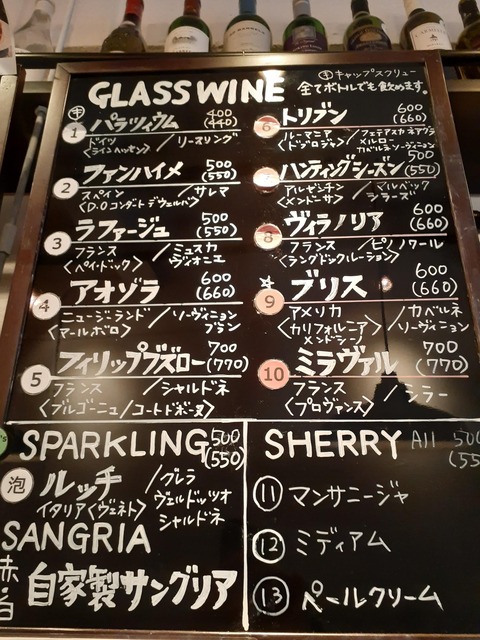 GLASS WINE
㋖キャップスクリュー
全てボトルでも飲めます。
㋖
1 パラツィウム 400 (440)
ドイツ〈ラインヘッセン〉/リースリング
2 ファンハイメ 500 (550)
スペイン〈D.Oコンダード デ ウェルバ〉/サレマ
3 ラファージュ 500 (550)
フランス〈ペイ・ドック〉/ミュスカ ヴィオニエ
4 アオゾラ 600 (660)
ニュージーランド〈マールボロ〉/ソーヴィニョンブラン
5 フィリップブズロー 700 (770)
フランス〈ブルゴーニュ/コートドボーヌ〉/シャルドネ
6 トリブン 600 (660)
ルーマニア〈ドブロジャ〉/フェテアスカネアグラ メルロー カベルネソーヴィニヨン
ハンティングシーズン 500 (550)
アルゼンチン〈メンドーサ〉/マルベック シラーズ
8 ヴィラノリア 600 (660)
フランス〈ラングドックルーション〉/ピノノワール
☆
9 ブリス 600 (660)
アメリカ〈カリフォルニア メンドシーノ〉/カベルネソーヴィニョン
10 ミラヴァル 700 (770)
フランス〈プロヴァンス〉/シラー
SPARKLING 500 (550)
泡 ルッチ
イタリア〈ヴェネト〉/グレラ ヴェルドゥッツオ シャルドネ
SANGRIA
赤・白 自家製サングリア
SHERRY All 500 (55
11 マンサニージャ
12 ミディアム
13 ペールクリーム